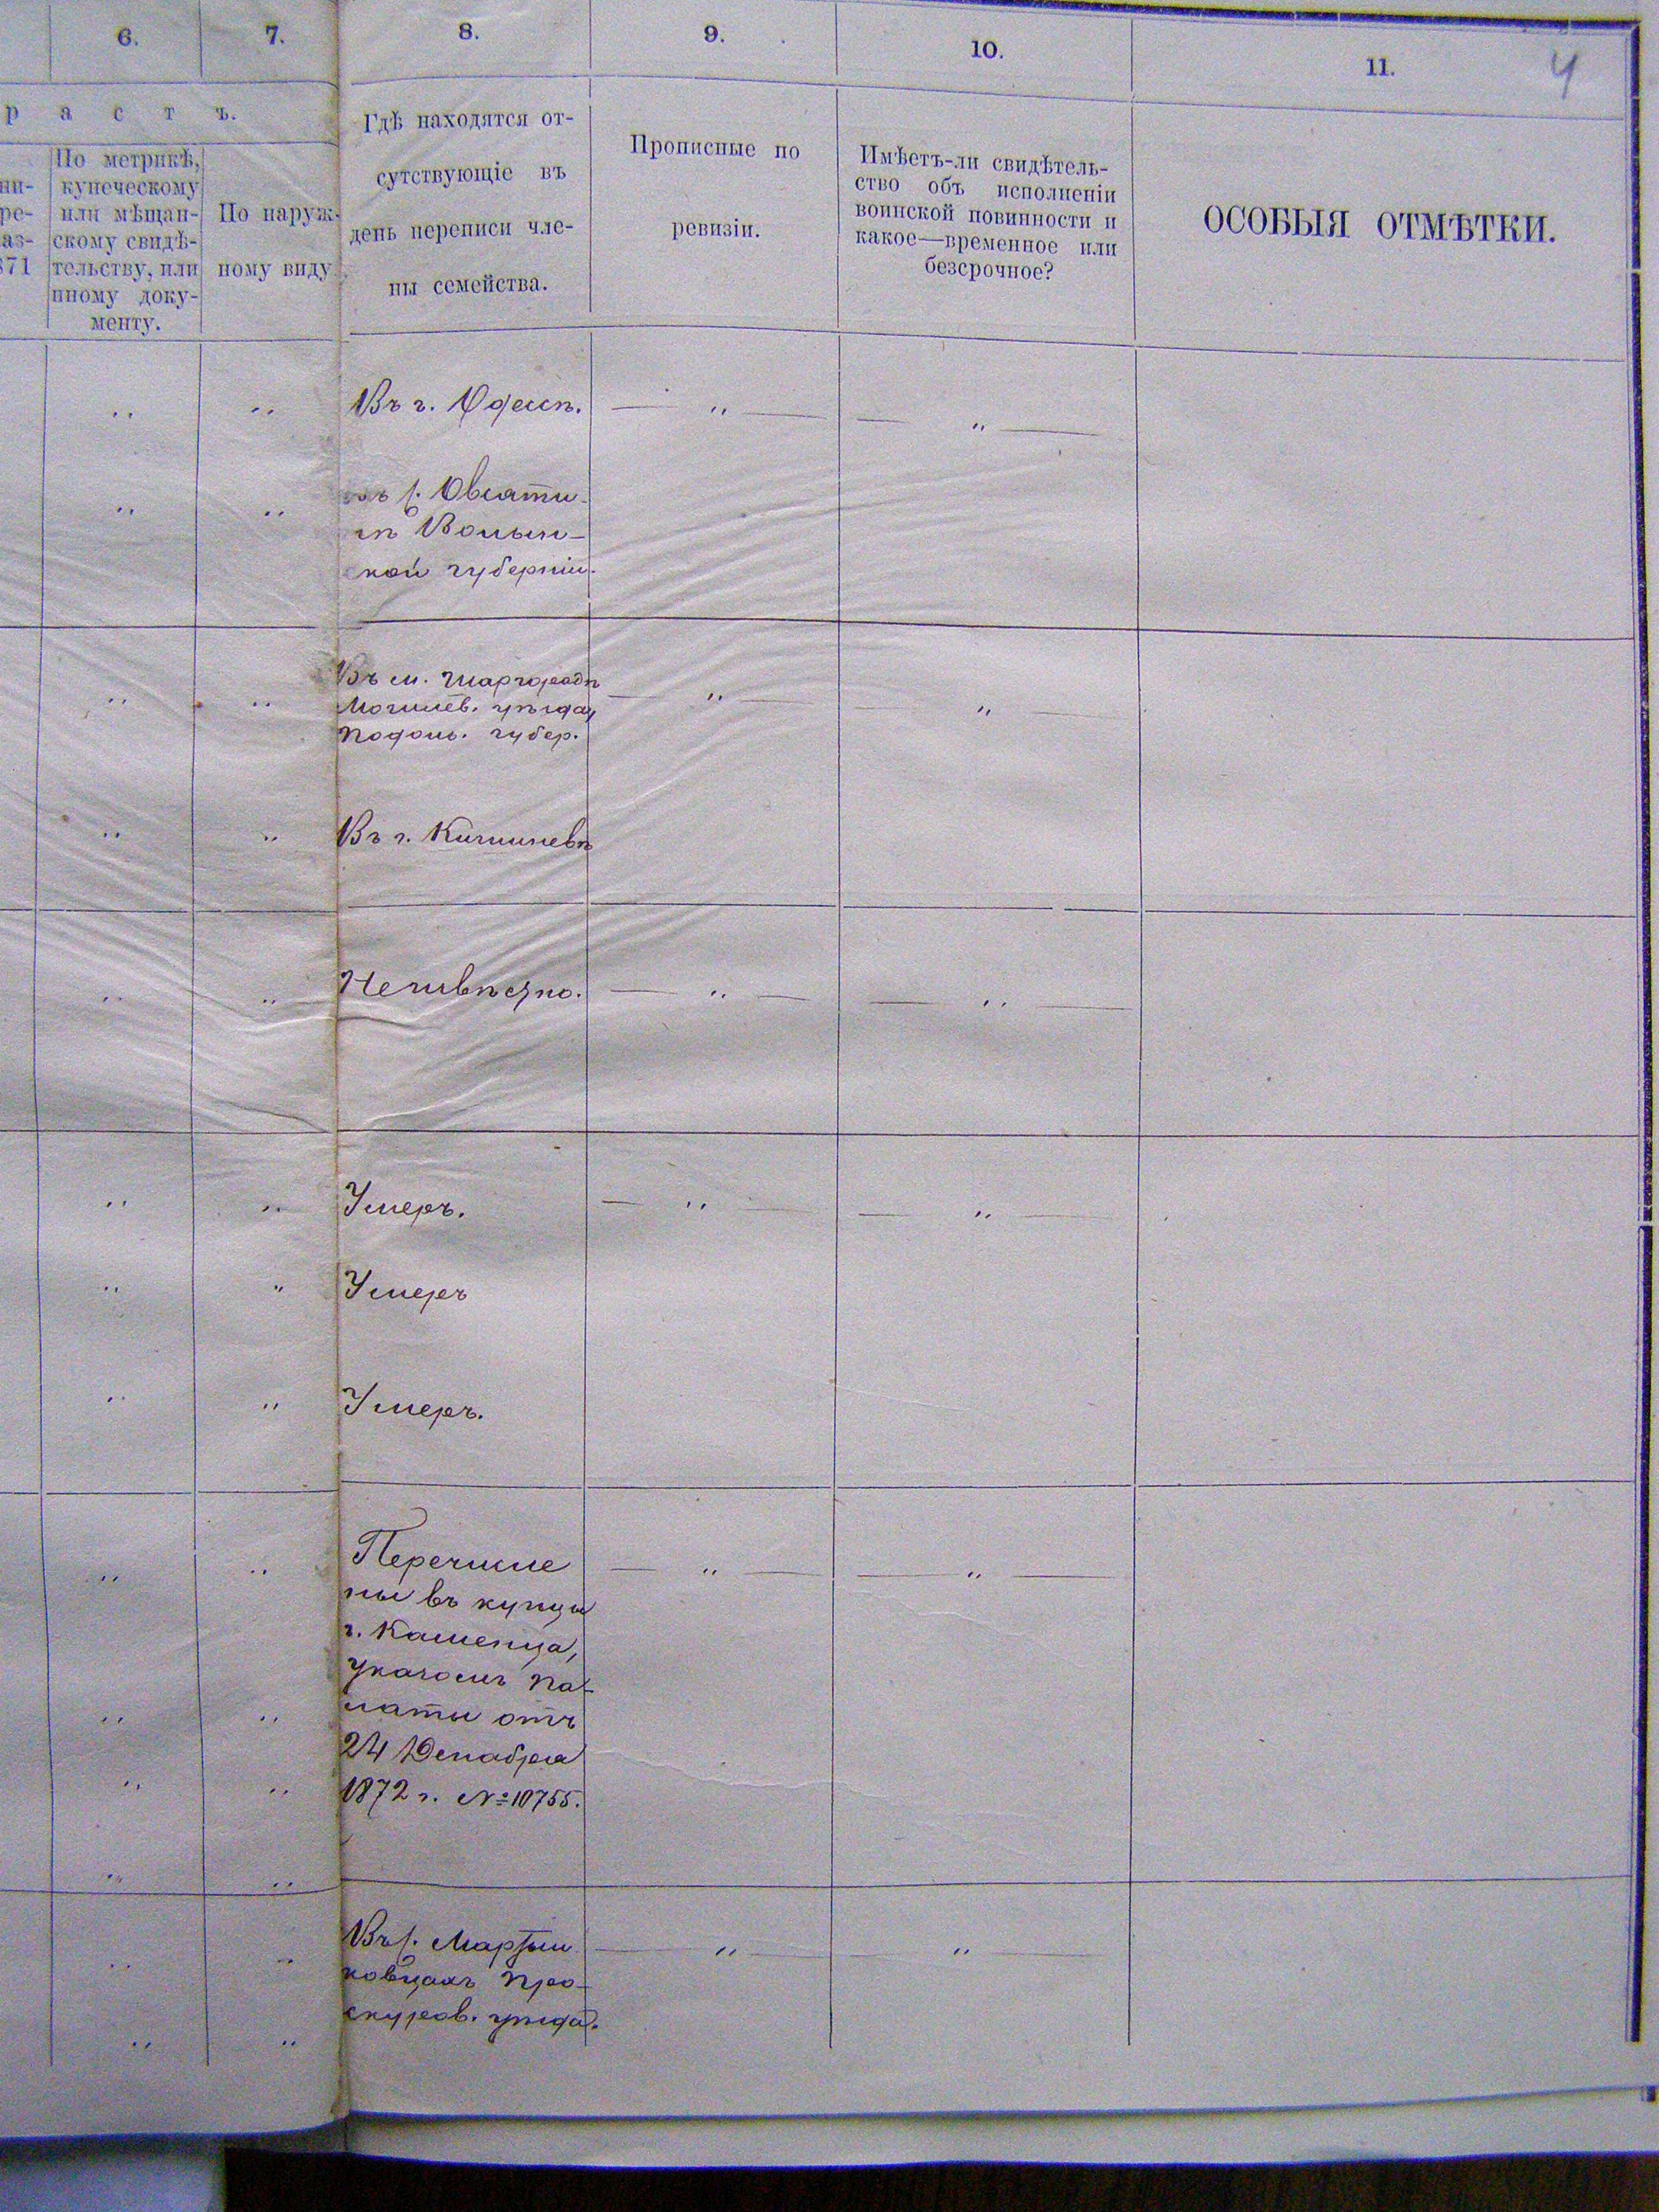 6.
7.
8.
9.
10.
11.
4
р а с т ъ.
ни-
ре-
аз-
871
По метрикѣ,
купеческому
или мѣщан-
скому свидѣ-
тельству, или
иному доку-
менту.
По наруж-
ному виду.
Гдѣ находятся от-
сутствующіе въ
день переписи чле-
ны семейства.
Прописные по
ревизіи.
Имѣетъ-ли свидѣтель-
ство объ исполненіи
воинской повинности и
какое—временное или
безсрочное?
ОСОБЫЯ ОТМѢТКИ.
Въ г. Одессѣ.
въ с.
Волын-
ской губерніи.
Въ м. Шаргородѣ
Могилев. уѣзда,
Подол. губер.
Въ г. Кишиневѣ
Неизвѣстно.
Умеръ.
Умеръ
Умеръ.
Перечисле
ны въ купцы
г. Каменца,
указомъ Па-
латы отъ
24 Декабря
1872 г. № 10755.
Въ с. Мартын
ковцахъ Про-
скуров. уѣзда.